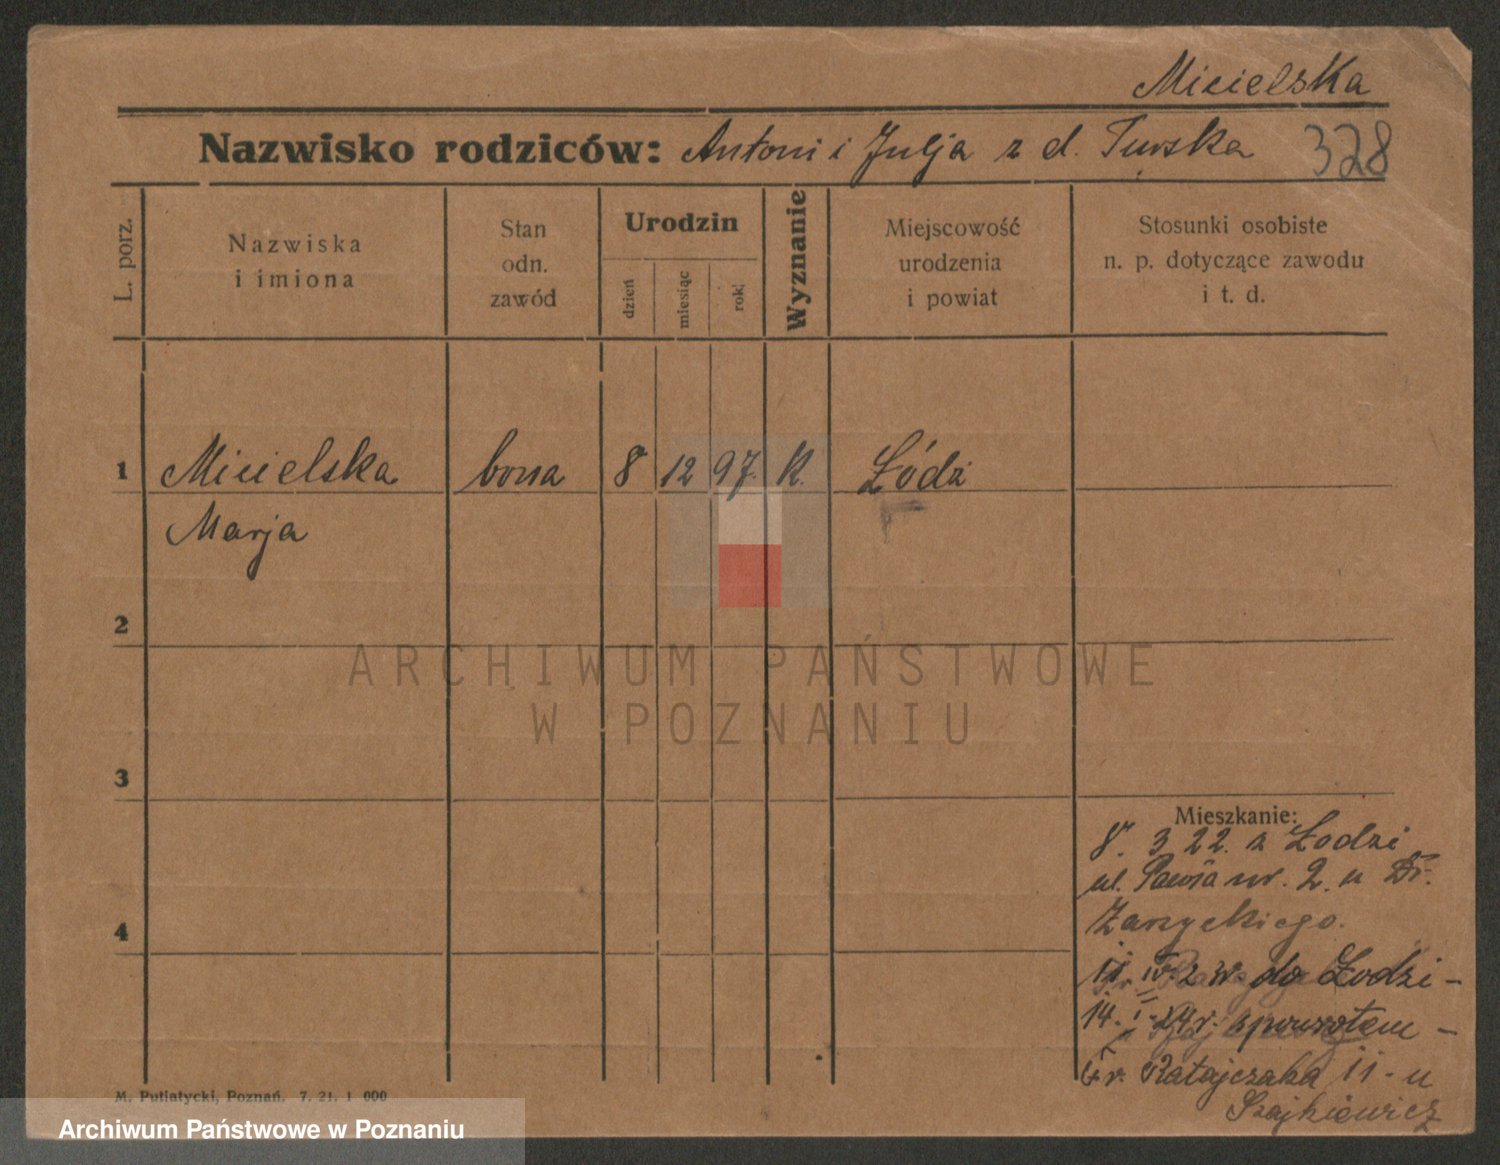 Micielska
Nazwisko rodziców: Antoni i Julja z d. Turska 328
L. porz.
Nazwiska
i imiona
Stan
odn.
zawód
Urodzin
dzień
miesiąc
rok
Wyznanie
Miejscowość
urodzenia
i powiat
Stosunki osobiste
n. p. dotyczące zawodu
i t. d.
1 Micielska bona 8 12 97. K. Łódź
Marja
2
3
4
Mieszkanie:
8. 3 22. z Łodzi
ul. Pawia nr. 2. u Dr.
Zarzyckiego.
11. IV. do Łodzi -
14. I. 24 r. spowrotem -
Fr. Ratajczaka 11 - u
Szajkiewicz
M. Putiatycki, Poznań. 7. 21. 1 000
ARCHIWUM PAŃSTWOWE
W POZNANIU
Archiwum Państwowe w Poznaniu